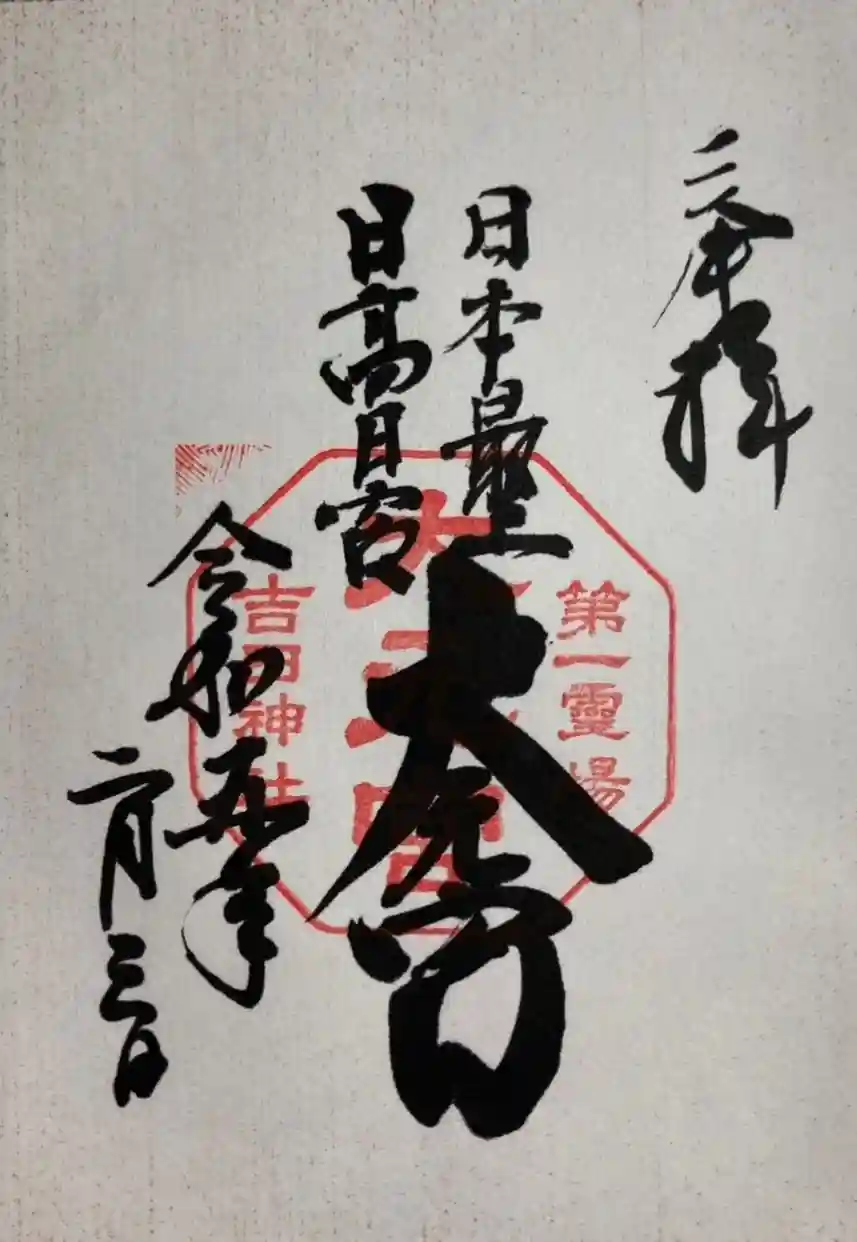 奉拝
日本最上
日高日宮
大元宮
令和五年
二月三日
第一靈場
大元宮
吉田神社